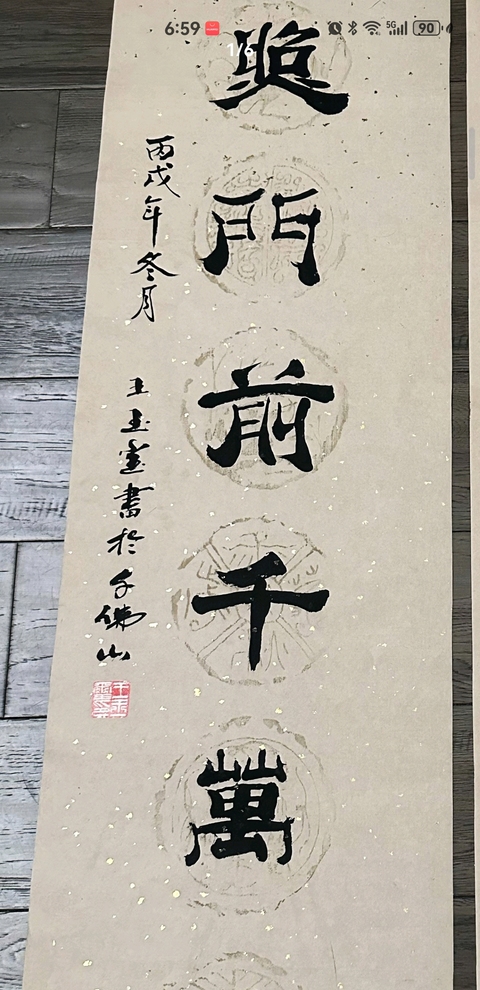 6:59
5G
90
1/6
照門前千萬
丙戌年冬月
王玉璽書於千佛山